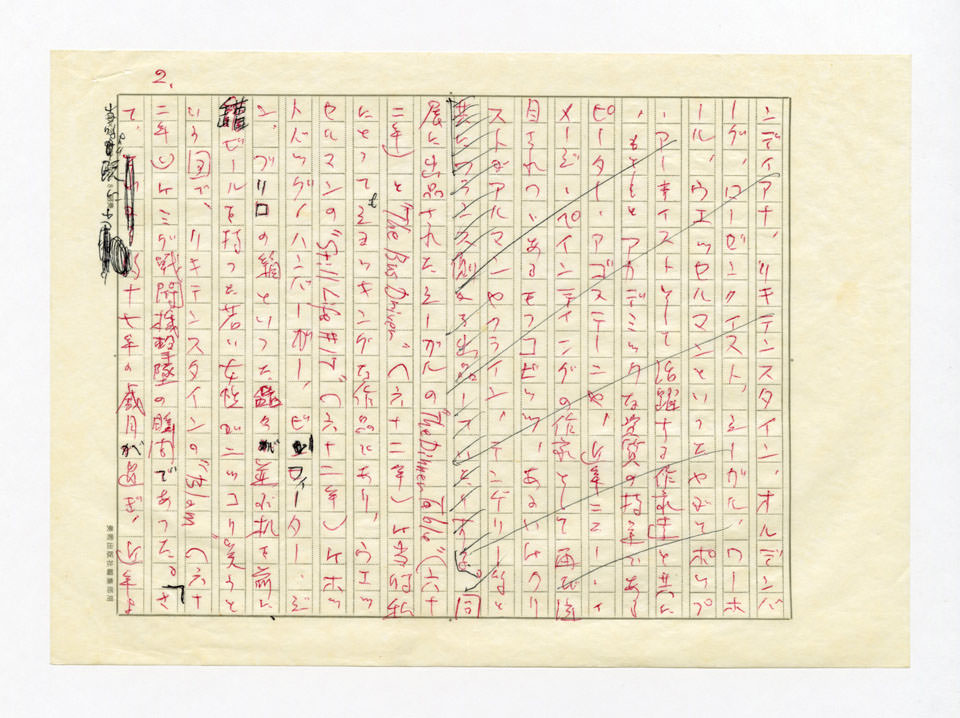 2.
ンディアナ、リキテンスタイン、オルデンバ
ーグ、ローゼンクイスト、シーガル、ワーホ
ール、ウエッセルマンといったやがてポップ
・アーキイストとして活躍する作家達と共に
、もともとアカデミックな学質の持主である
ピーター・アゴスティーニや、近年ニュー・イ
メージ・ペインティングの作家として再び注
目されつつあるモフコビッツ、あるいはクリ
ストやアルマンやクライン、ティンゲリー等と
共にフランス側から出品していたりする。同
展に出品されたシーガルの“The Dinner Table”(六十
二年)と“The Bus Driver”(六十二年)は当時私
にとってもショッキングな作品であり、ウエッ
セルマンの“Still Life #17”(六十二年)はホッ
トドッグ、ハンバーガー、ビーフィーター・ジ
ン、ブリロの箱といった 々が並ぶ机を前に
ビールを持った若い女性がニッコリ笑うと
いう図で、リキテンスタインの“Blam”(六十
二年)はミグ戦闘機撃墜の瞬間であった。さ
て、 十七年の歳月が過ぎ、近年よ